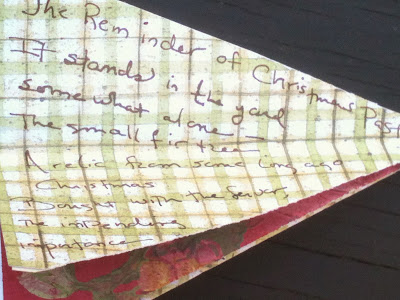 The Reminder of Christmas Past
It stands in the yard
somewhat alone —
The small fir tree
A relic from some long ago
Christmas
Bought with the fever,
The impending
importance